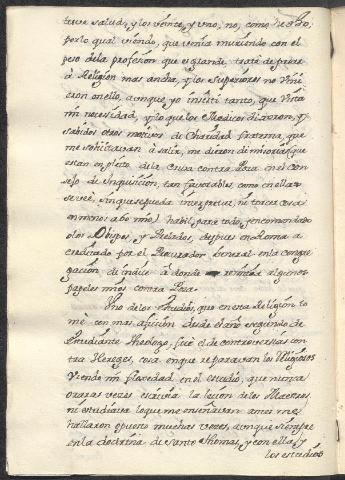 tuve salud, y los veinte, y uno, no, como he dho;
por lo qual viendo, que venia muriendo con el
peso de la profesion que es grande, traté de pasar
à Religion mas ancha, y los Superiores no vini
eron en ello, aunque yo insistí tanto, que vista
mi necesidad, y lo que los Medicos dixeron, y
sabidos otros motivos de Charidad fraterna, que
me obligaban à salir, me dieron dimisorias, que
estan en pleito de la causa contra Poza en el con
sejo de Inquisicion, tan favorables, como en ellas
se ve, sin que se pueda interpretar, ni torcer cosa
en menos abono mio, habil para todo, y encomendado
à los Obispos, y Prelados, despues en Roma a
creditado por el Procurador General en la congre
gacion de Indice à donde remitia algunos
papeles mios contra Poza.
Uno de los estudios, que en esta Religion to
mè con mas aficion desde el año segundo de
Estudiante Theologo, fue el de controversias con
tra Hereges, cosa en que reparavan los Religiosos
viendo mi flogedad en el estudio, que nunca
o raras veces escrivia la licion de los Maestros
ni estudiava lo que me enseñavan, antes me
hallaron opuesto muchas veces, aunque siempre
en la doctrina de Santo Thomas, y con ella, y
los estudios